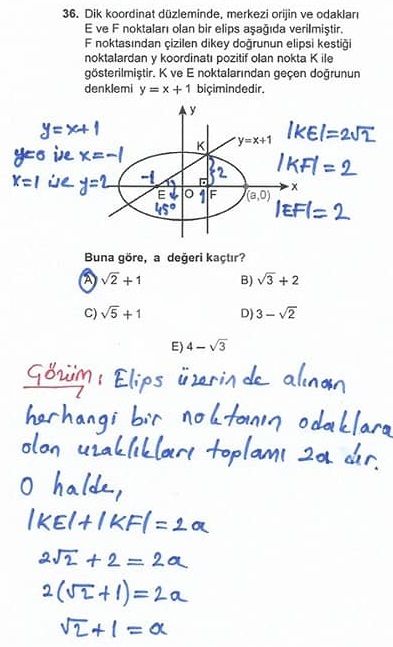 36. Dik koordinat düzleminde, merkezi orijin ve odakları
E ve F noktaları olan bir elips aşağıda verilmiştir.
F noktasından çizilen dikey doğrunun elipsi kestiği
noktalardan y koordinatı pozitif olan nokta K ile
gösterilmiştir. K ve E noktalarından geçen doğrunun
denklemi y = x + 1 biçimindedir.
y=x+1
y=0 ise x=-1
x=1 ise y=2
y
K
y=x+1
2
-1
x
E
O
1
F
(a,0)
45°
|KE|=2√2
|KF|=2
|EF|=2
Buna göre, a değeri kaçtır?
A) √2 + 1
B) √3 + 2
C) √5 + 1
D) 3 – √2
E) 4 – √3
Çözüm: Elips üzerinde alınan
herhangi bir noktanın odaklara
olan uzaklıkları toplamı 2a dır.
O halde,
|KE|+|KF|=2a
2√2 + 2 = 2a
2(√2+1)=2a
√2+1=a